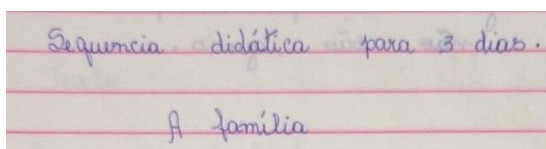 Sequencia didática para 3 dias.
A família